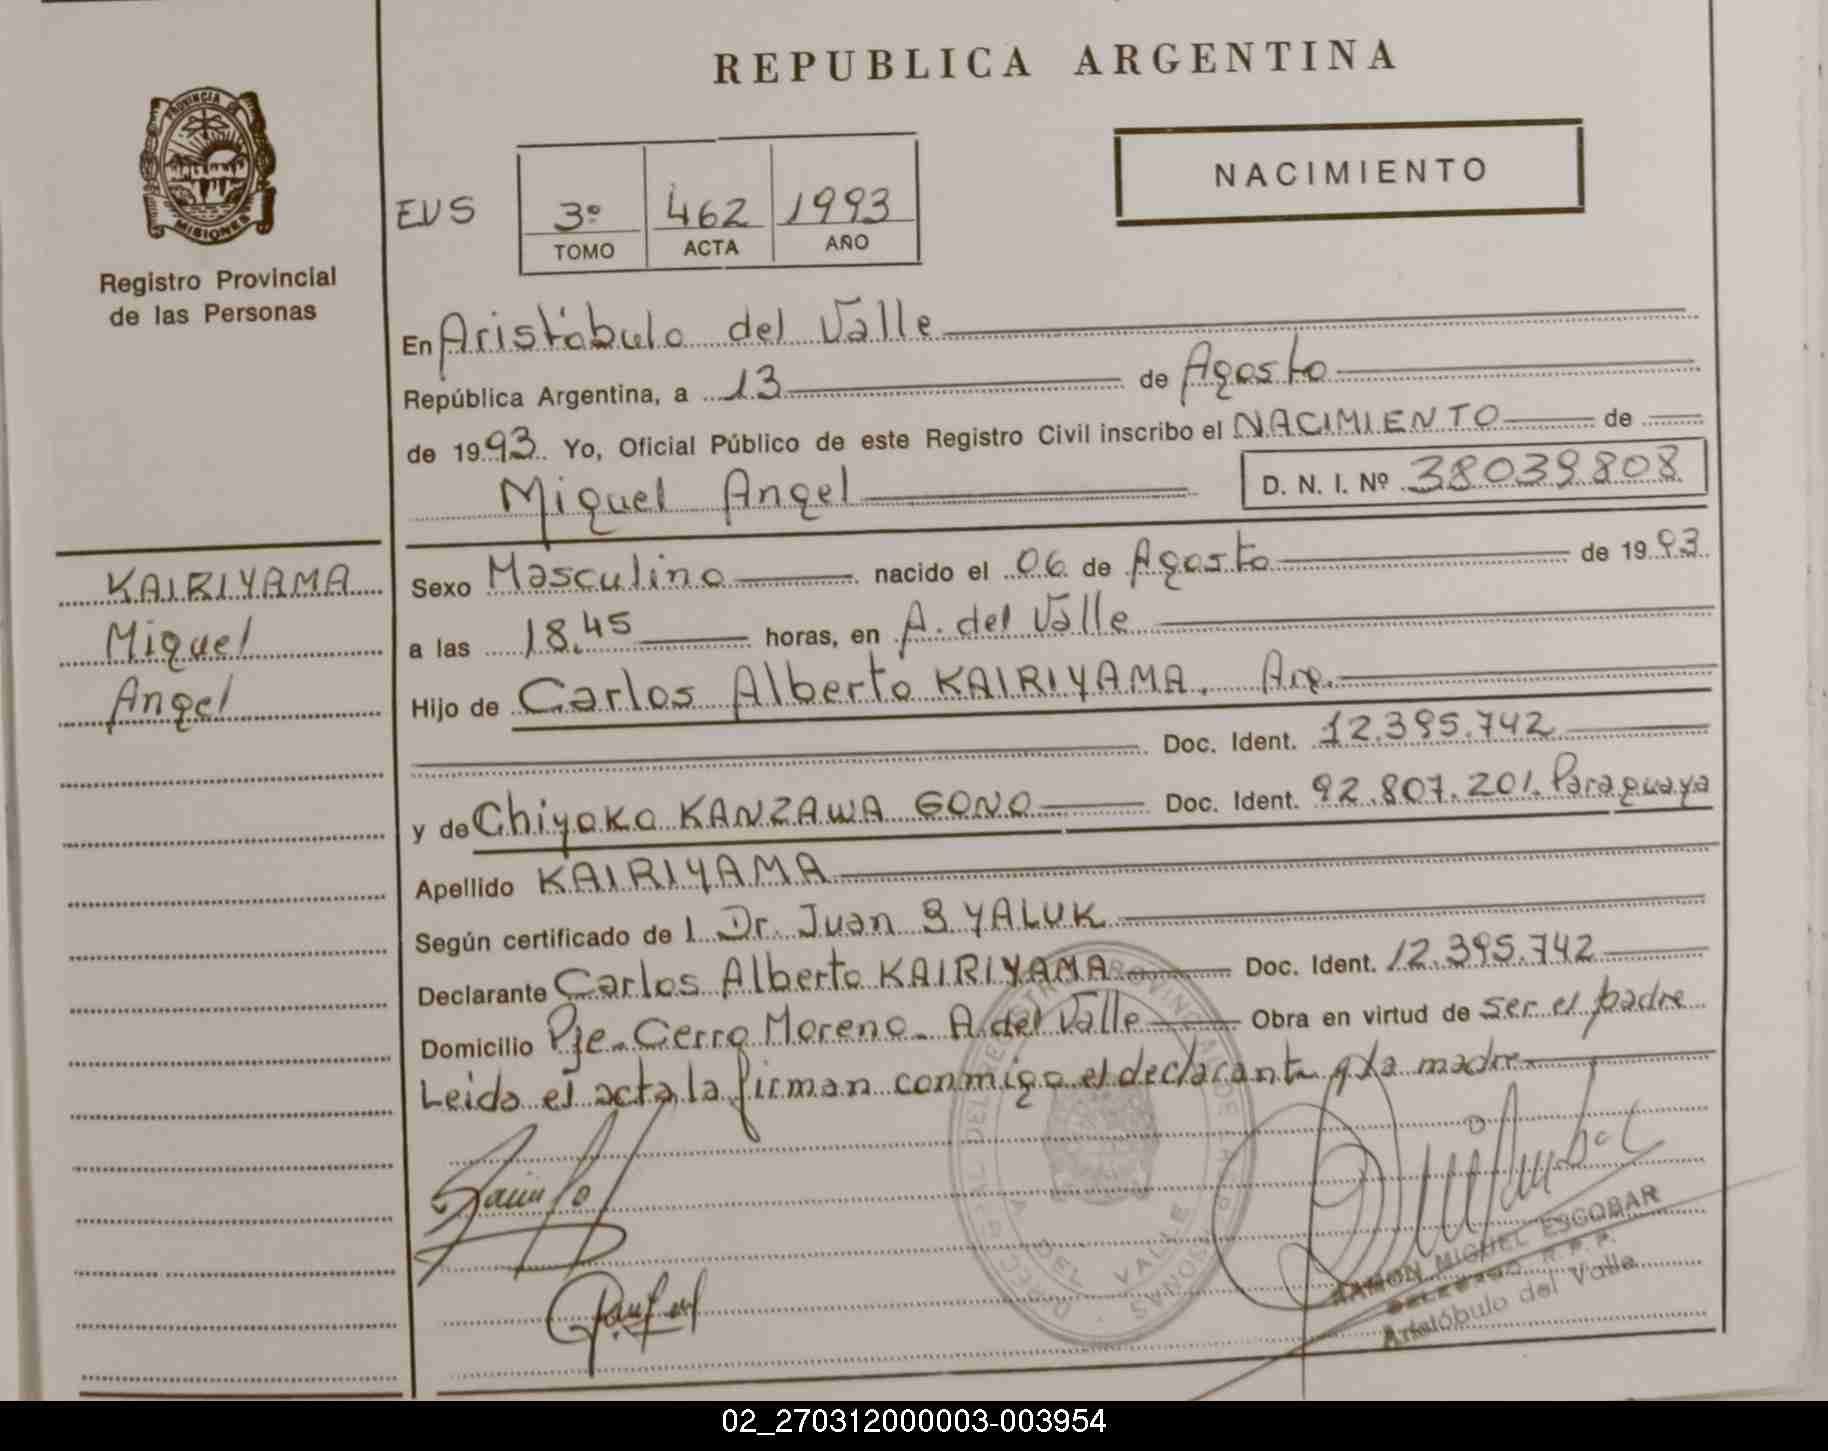 REPUBLICA ARGENTINA
PROVINCIA DE
MISIONES
Registro Provincial
de las Personas
NACIMIENTO
EUS
3º 462 1993
TOMO ACTA AÑO
En Aristóbulo del Valle
República Argentina, a 13 de Agosto
de 1993 Yo, Oficial Público de este Registro Civil inscribo el NACIMIENTO de
Miguel Angel D. N. I. Nº 38039808
KAIRIYAMA
Miguel
Angel
Sexo Masculino nacido el 06 de Agosto de 1993
a las 18.45 horas, en A. del Valle
Hijo de Carlos Alberto KAIRIYAMA. Arg.
Doc. Ident. 12.395.742
y de Chiyoko KANZAWA GONO Doc. Ident. 92.807.201. Paraguaya
Apellido KAIRIYAMA
Según certificado de l Dr. Juan B YALUK
Declarante Carlos Alberto KAIRIYAMA Doc. Ident. 12.395.742
Domicilio Pje. Cerro Moreno - A. del Valle Obra en virtud de ser el padre
Leida el acta la firman conmigo el declarante y la madre
DEL VALLE
RAMON MIGUEL ESCOBAR
DELEGADO R.P.P.
Aristóbulo del Valle
02_270312000003-003954